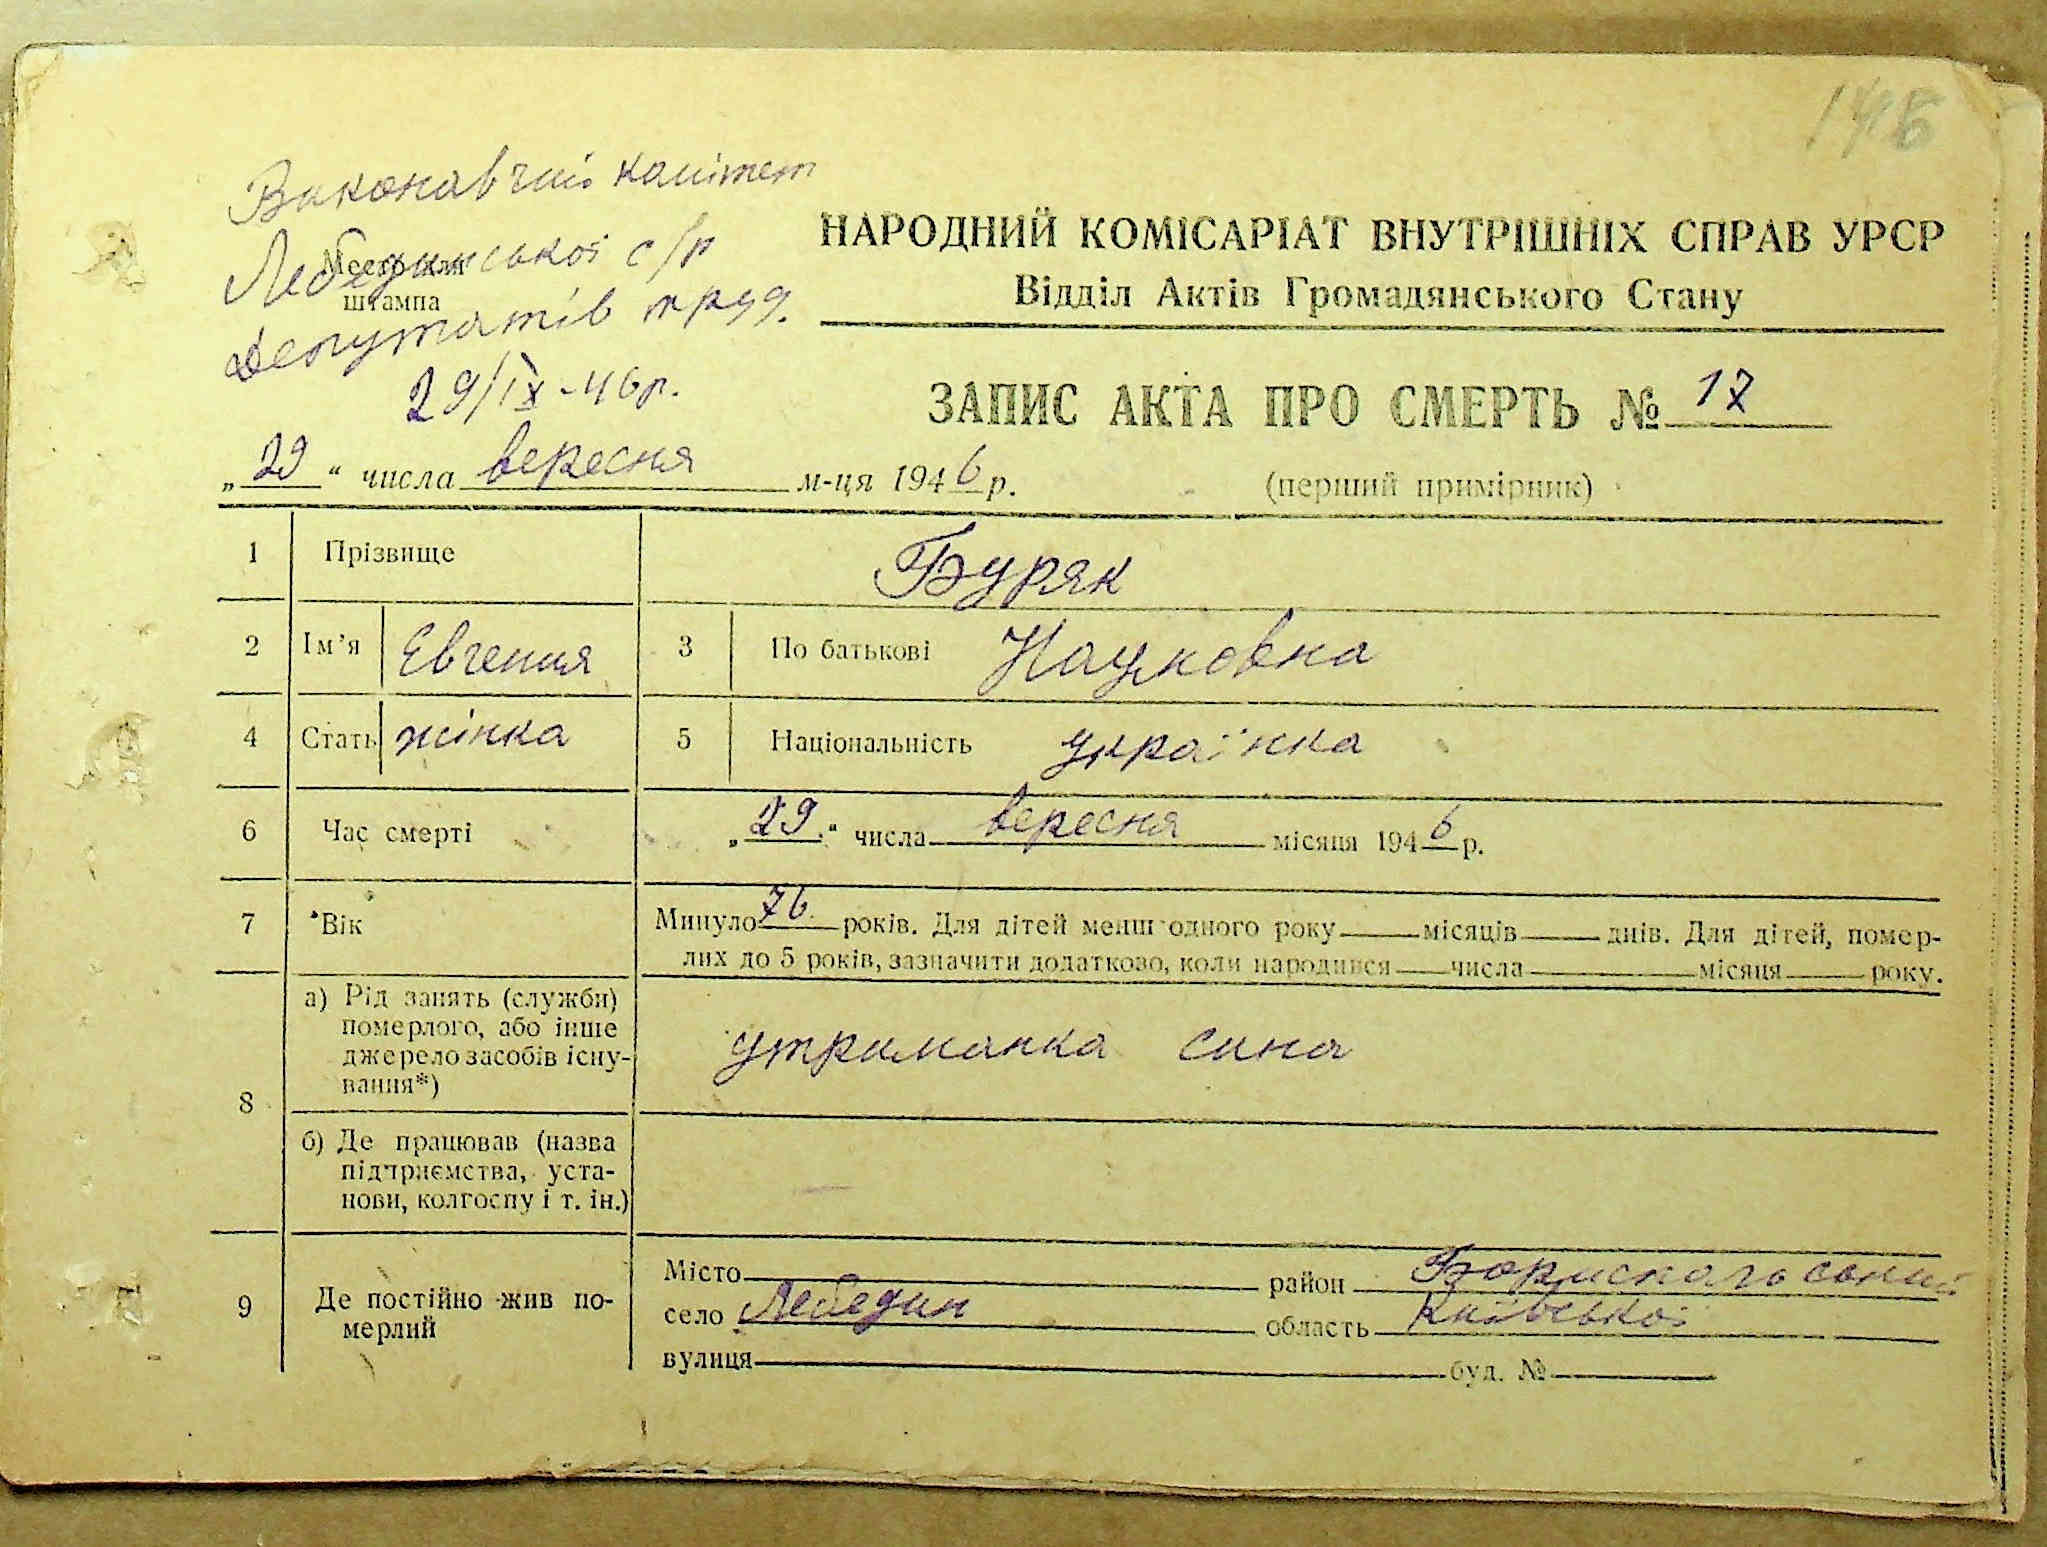 146
Виконавчий комітет
Лебединської с/р
Депутатів труд.
29/IX-46р.
Место для
штампа
НАРОДНИЙ КОМІСАРІАТ ВНУТРІШНІХ СПРАВ УРСР
Відділ Актів Громадянського Стану
ЗАПИС АКТА ПРО СМЕРТЬ № 17
„29“ числа вересня м-ця 1946 р. (перший примірник)
1 Прізвище Буряк
2 Ім’я Евгения 3 По батькові Наумовна
4 Стать жінка 5 Національність українка
6 Час смерті „29.“ числа вересня місяця 1946 р.
7 Вік Минуло 76 років. Для дітей менш одного року місяців днів. Для дітей, помер-
лих до 5 років, зазначити додатково, коли народився числа місяця року.
8 а) Рід занять (служби)
померлого, або інше
джерело засобів існу-
вання*) утриманка сина
б) Де працював (назва
підприємства, уста-
нови, колгоспу і т. ін.)
9 Де постійно жив по-
мерлий
Місто район Бориспольський
село Лебедин область Київської
вулиця буд. №